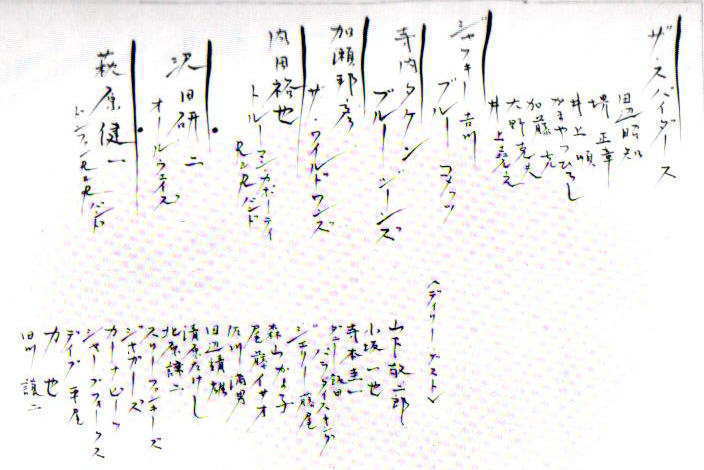 ザ・スパイダース
田辺昭知
堺正章
井上順
かまやつひろし
加藤充
大野克夫
井上堯之
ジャッキー吉川
ブルーコメッツ
寺内タケシ
ブルージーンズ
加瀬邦彦
ザ・ワイルドワンズ
内田裕也
トルーマンカポーティ
R&Rバンド
沢田研二
オールウェイズ
萩原健一
ドンファンR&Rバンド
<デイリーゲスト>
山下敬二郎
小坂一也
寺本圭一
ダニー飯田
パラダイスキング
ジェリー藤尾
森山加代子
尾藤イサオ
佐川満男
田辺靖雄
清原たけし
北原謙二
スリーファンキーズ
ジャガーズ
カーナビーツ
シャープフォークス
デイブ平尾
力也
田川譲二